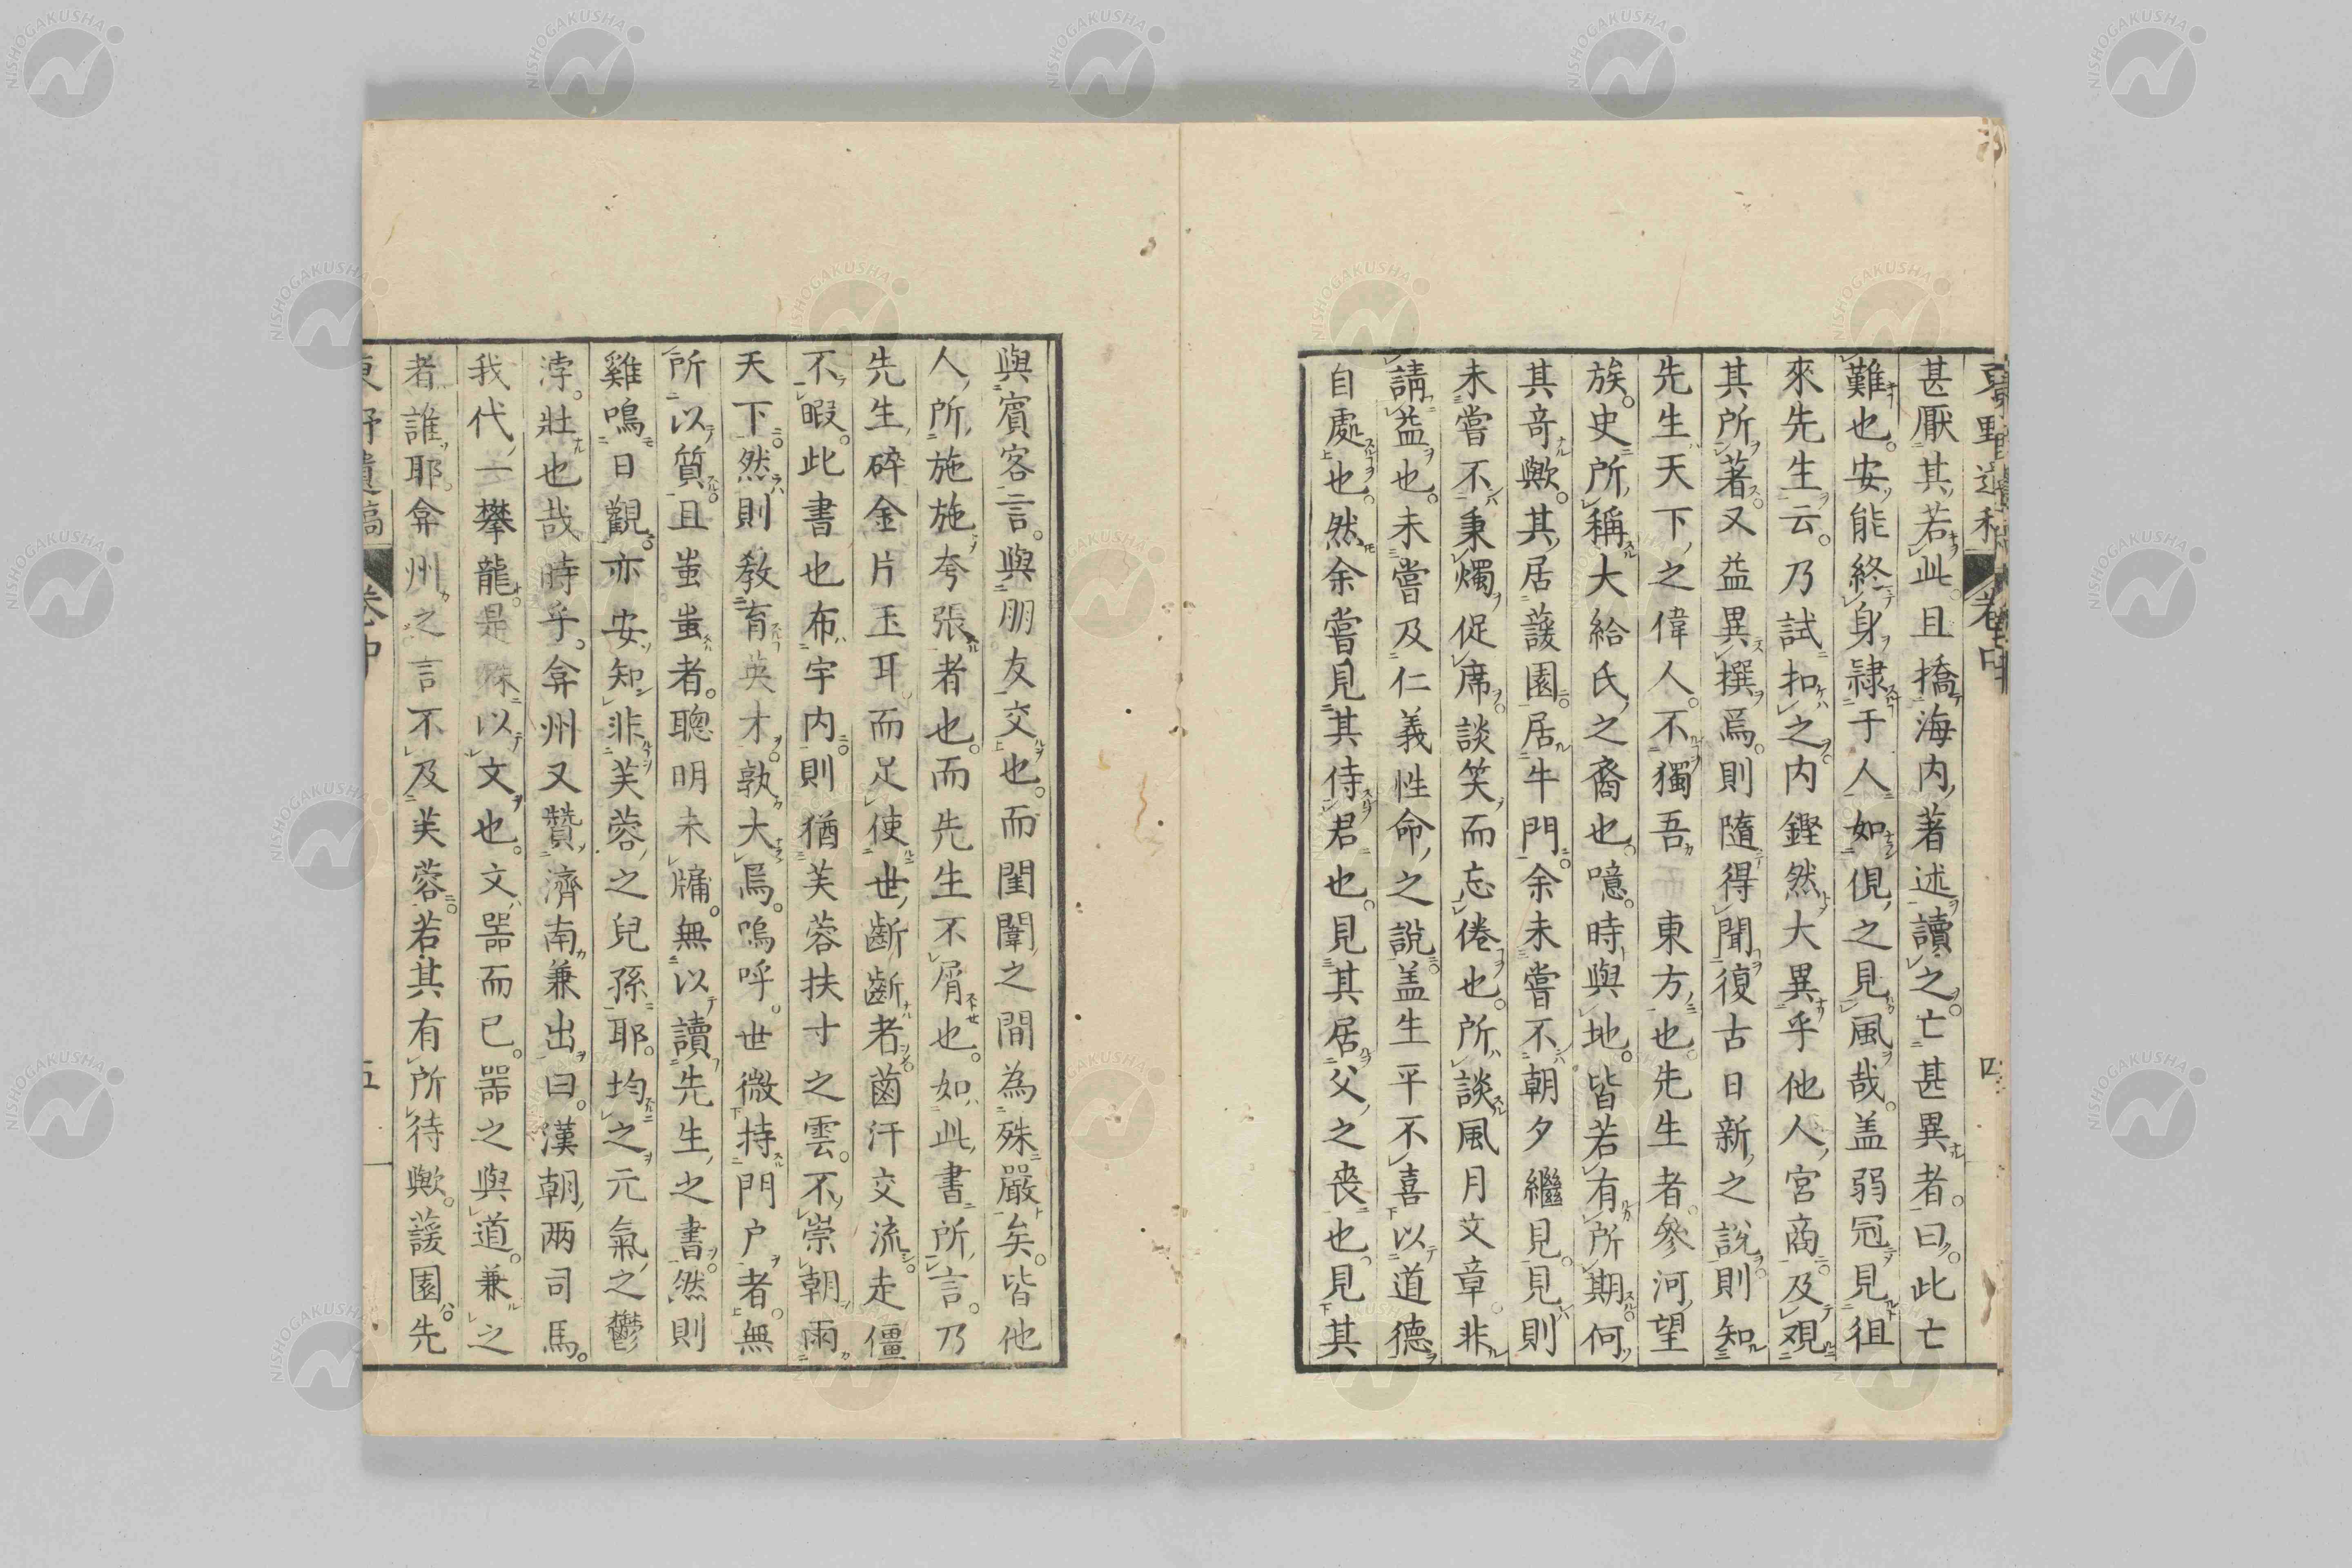 甚厭其若此且擕海内著述讀之亡甚異者曰此亡
難也安能終身隷于人如俔之見風哉盖弱冠見徂
來先生云乃試扣之内鏗然大異乎他人宮商及覌
其所著又益異撰焉則隨得聞復古日新之說則知
先生天下之偉人不獨吾而東方也先生者參河望
族史所稱大給氏之裔也噫時與地皆若有所期何
其奇歟其居蘐園居牛門余未嘗不朝夕繼見見則
未嘗不秉燭促席談笑而忘倦也所談風月文章非
請益也未嘗及仁義性命之說盖生平不喜以道德
自處也然余嘗見其侍君也見其居父之丧也見其
與賓客言與朋友交也而閨闈之間為殊嚴矣皆他
人所施施夸張者也而先生不屑也如此書所言乃
先生碎金片玉耳而足使世齗齗者齒汗交流走僵
不暇此書也布宇内則猶芙蓉扶寸之雲不崇朝雨
天下然則教育英才孰大焉嗚呼世微持門户者無
所以質且蚩蚩者聰明未牖無以讀先生之書然則
雞鳴日觀亦安知非芙蓉之兒孫耶均之元氣之鬱
浡壮也哉時乎弇州又贊濟南兼出曰漢朝兩司馬
我代一攀龍是殊以文也文噐而已噐之與道兼之
者誰耶弇州之言不及芙蓉若其有所待歟蘐園先
東野遺稿 卷中 五